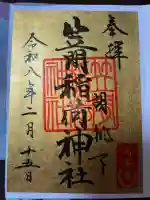 奉拝
笠間稲荷神社
令和八年一月十五日